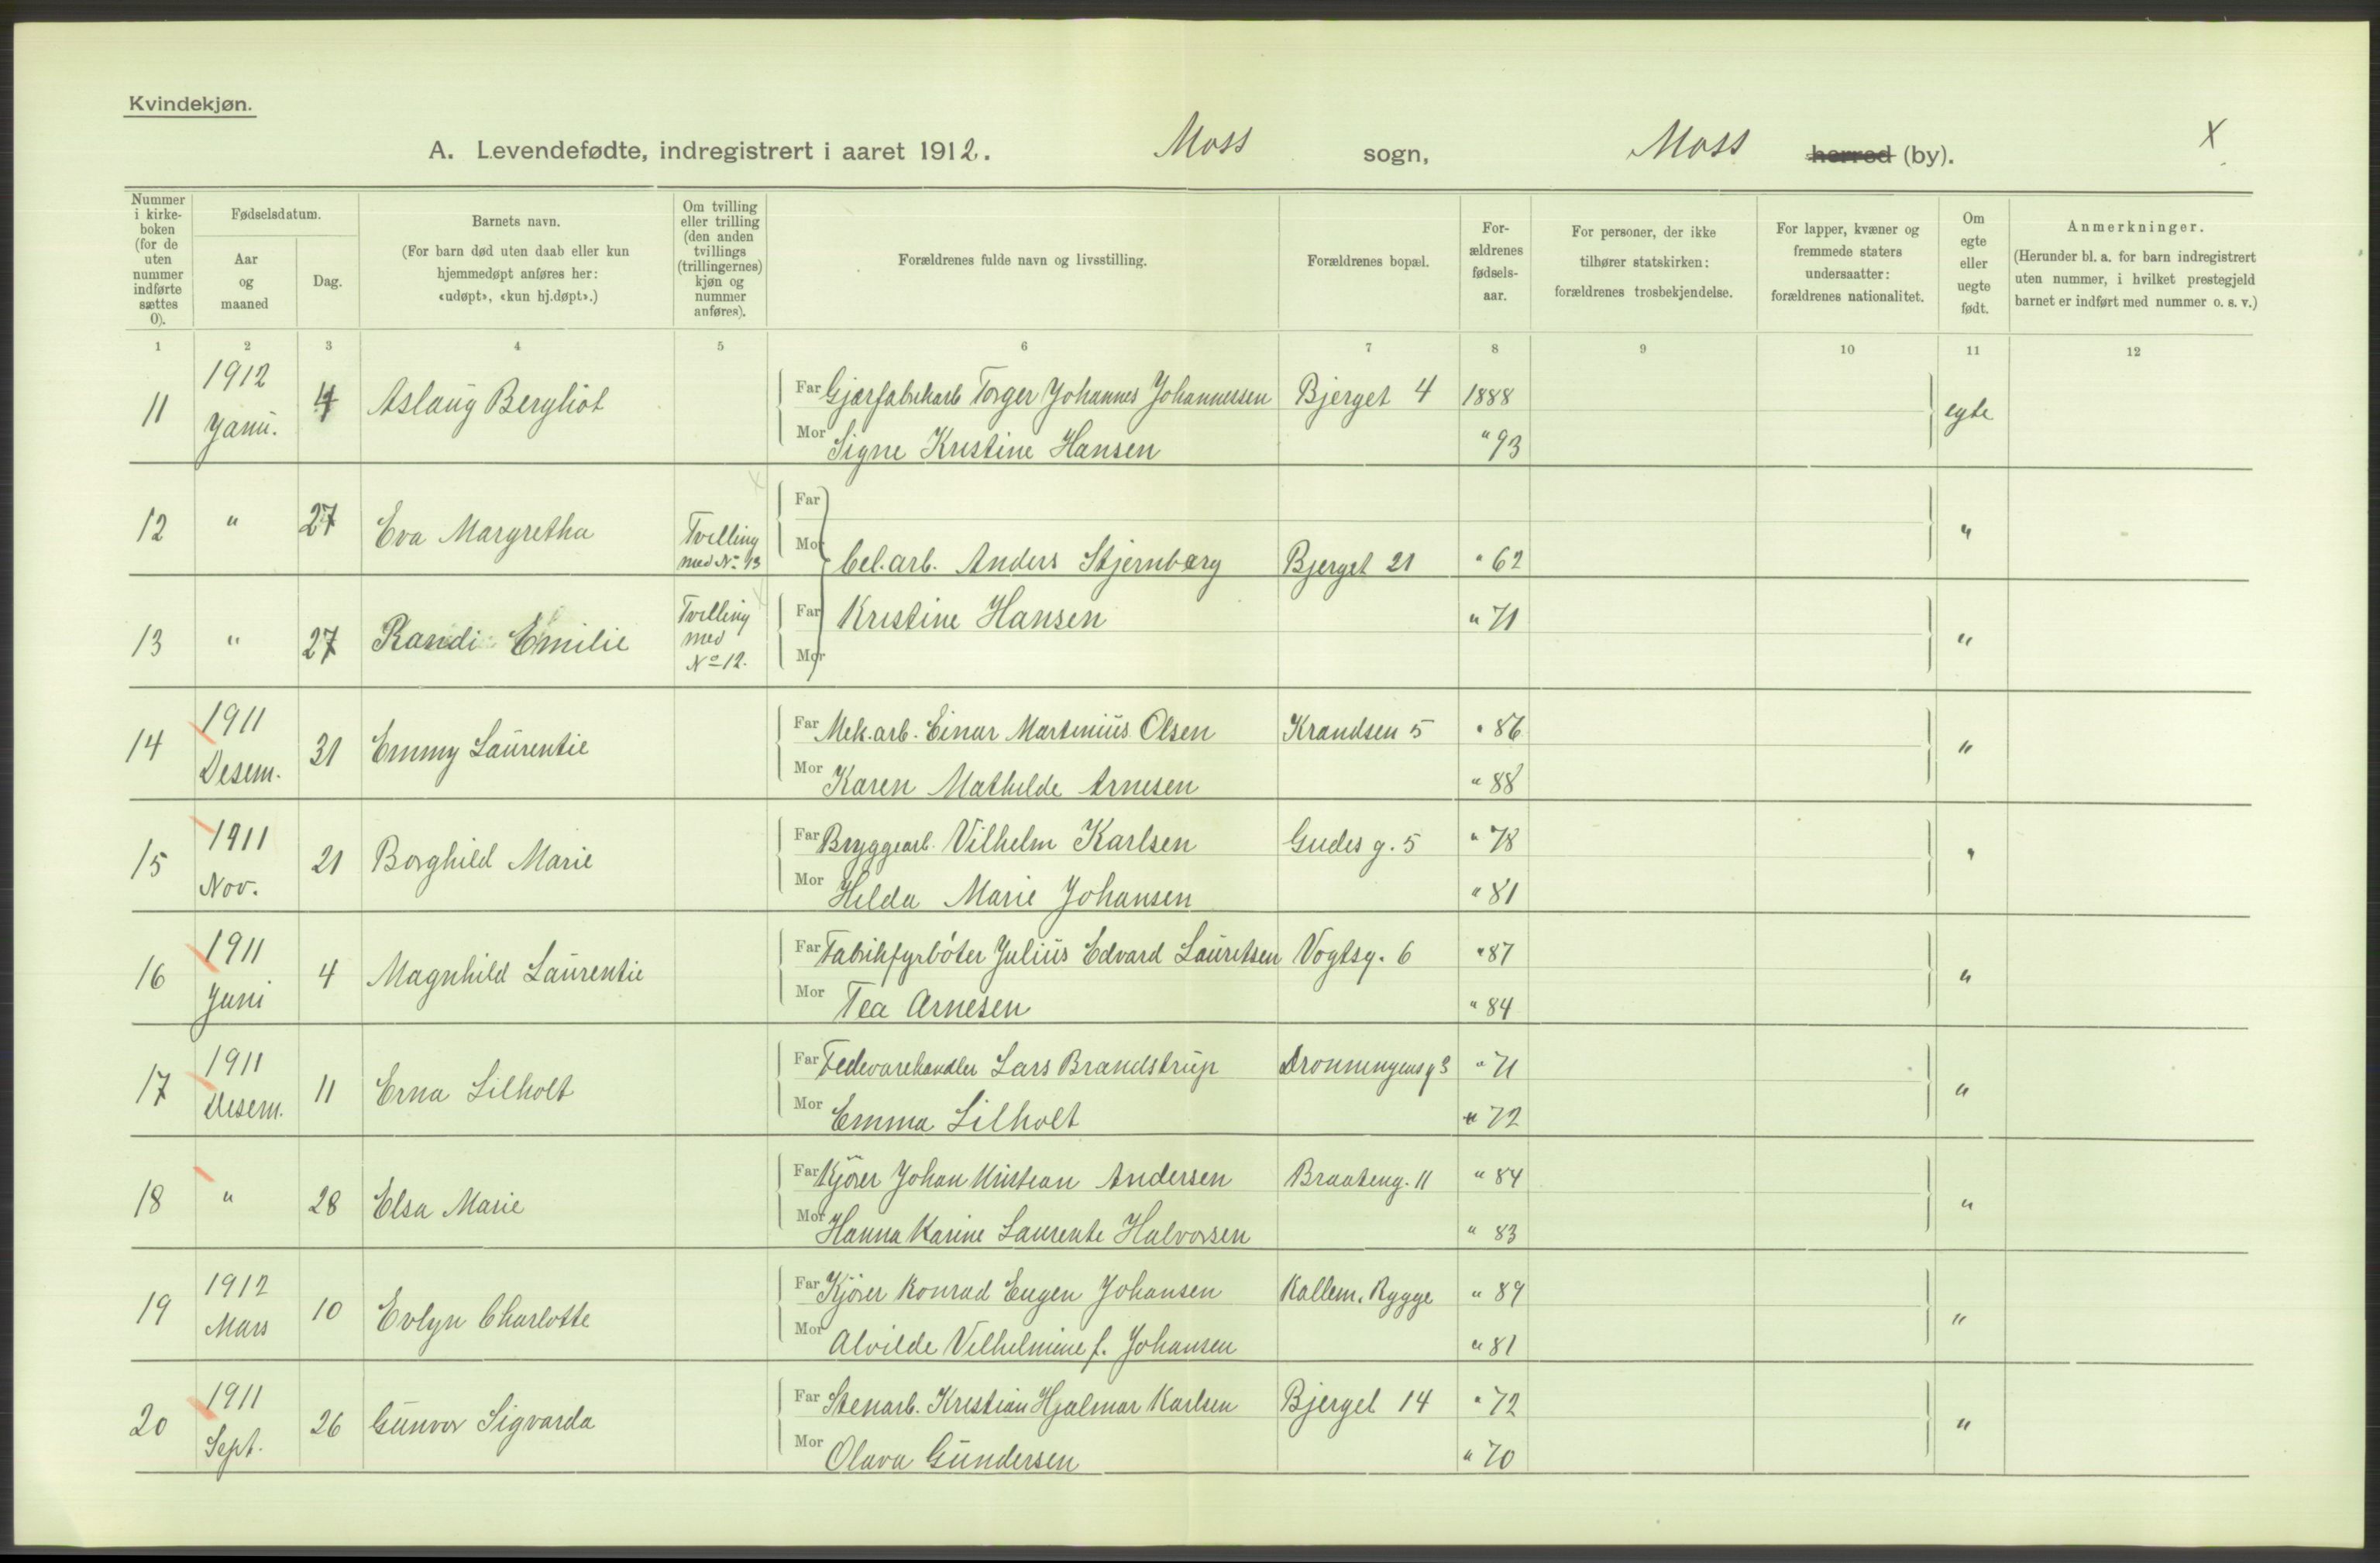 Kvindekjøn.
A. Levendefødte, indregistrert i aaret 1912. Moss sogn, Moss herred (by). X
Nummer i kirke-boken (for de uten nummer indførte sættes 0).
Fødselsdatum.
Aar og maaned
Dag.
Barnets navn.
(For barn død uten daab eller kun
hjemmedøpt anføres her:
«udøpt», «kun hj.døpt».)
Om tvilling
eller trilling
(den anden
tvillings
(trillingernes)
kjøn og
nummer
anføres).
Forældrenes fulde navn og livsstilling.
Forældrenes bopæl.
For-
ældrenes
fødsels-
aar.
For personer, der ikke
tilhører statskirken:
forældrenes trosbekjendelse.
For lapper, kvæner og
fremmede staters
undersaatter:
forældrenes nationalitet.
Om
egte
eller
uegte
født.
Anmerkninger.
(Herunder bl. a. for barn indregistrert
uten nummer, i hvilket prestegjeld
barnet er indført med nummer o. s. v.)
1 2 3 4 5 6 7 8 9 10 11 12
11 1912 Janu. 4 Aslaug Bergliot Far Gjærfabrikarb Torger Johannes Johannessen Bjerget 4 1888 egte
Mor Signe Kristine Hansen " 93
12 " 27 Eva Margretha Tvilling med No 13 Far
Mor Cel.arb. Anders Stjernberg Bjerget 21 " 62 "
13 " 27 Randi Emilie Tvilling med No 12. Far Kristine Hansen " 71 "
Mor
14 1911 Desem. 31 Emmy Laurentie Far Mek.arb. Einar Martinius Olsen Krandsen 5 " 86 "
Mor Karen Mathilde Arnesen " 88
15 1911 Nov. 21 Borghild Marie Far Bryggearb. Vilhelm Karlsen Gudes g. 5 " 78 "
Mor Hilda Marie Johansen " 81
16 1911 Juni 4 Magnhild Laurentie Far Fabrikfyrbøter Julius Edvard Lauritsen Vogtsg. 6 " 87 "
Mor Tea Arnesen " 84
17 1911 Desem. 11 Erna Lilholt Far Fedevarehandler Lars Brandstrup Dronningensg 3 " 71 "
Mor Emma Lilholt " 72
18 " 28 Elsa Marie Far Kjører Johan Kristian Andersen Braateng. 11 " 84 "
Mor Hanna Karine Laurente Halvorsen " 83
19 1912 Mars 10 Evlyn Charlotte Far Kjører Konrad Eugen Johansen Kallem, Rygge " 89 "
Mor Alvilde Vilhelmine f. Johansen " 81
20 1911 Sept. 26 Gunvor Sigvarda Far Stenarb. Kristian Hjalmar Karlsen Bjerget 14 " 72 "
Mor Olava Gundersen " 70